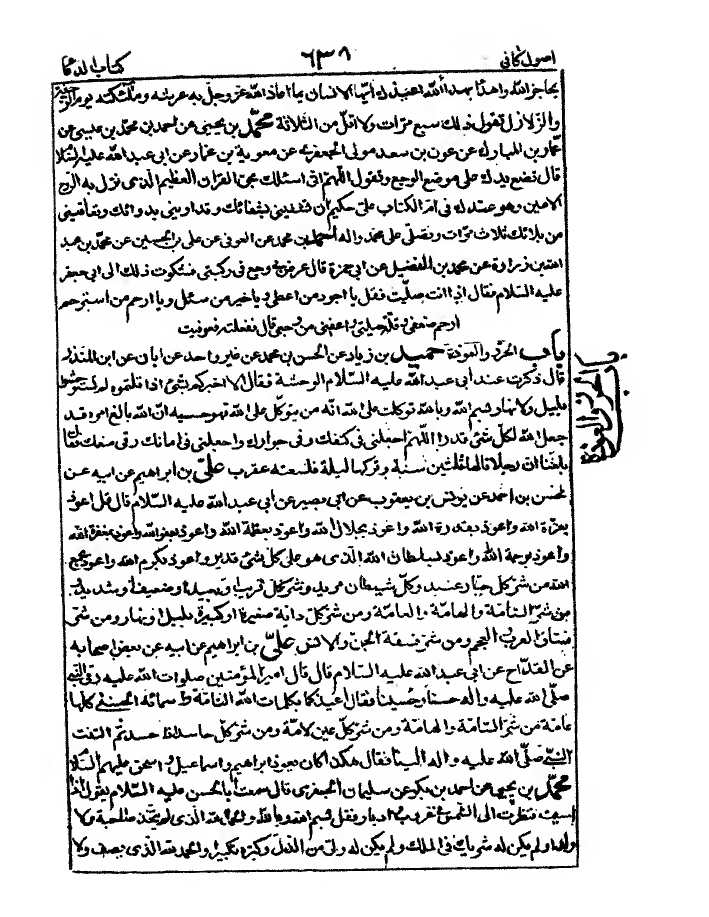 اصول كافى ٦٣٨ كتاب الدعا
يا اجرالله واهذا بهذا الله اعيذك ايها الانسان بما اعاذ الله عز وجل به عرشه وملئكته يوم الرجفة
والزلازل تقول ذلك سبع مرات ولا اقل من الثلاثة محمد بن يحيى عن احمد بن محمد بن عيسى عن
عمار بن المبارك عن عون بن سعد مولى الجعفرى عن معوية بن عمار عن ابى عبد الله عليه السلام
قال تضع يدك على موضع الوجع وتقول اللهم انى اسئلك بحق القران العظيم الذى نزل به الروح
الامين وهو عندك فى ام الكتاب على حكيم ان تشفينى بشفائك وتداوينى بدوائك وتعافينى
من بلائك ثلاث مرات وتصلى على محمد واله احمد بن محمد عن العوفى عن على بن الحسين عن محمد بن عبد
الله بن زرارة عن محمد بن الفضيل عن ابى حمزة قال عرض بى وجع فى ركبتى فشكوت ذلك الى ابى جعفر
عليه السلام فقال اذا انت صليت فقل يا اجود من اعطى ويا خير من سئل ويا ارحم من استرحم
ارحم ضعفى وقلة حيلتى واعفنى من وجعى قال ففعلت فعوفيت
باب الحرز والعوذة حميد بن زياد عن الحسن بن محمد عن غير واحد عن ابان عن ابن المنذر
قال ذكرت عند ابى عبد الله عليه السلام الوحشة فقال الا اخبركم بشئ اذا قلتموه لم تستوحشوا
بليل ولا نهار بسم الله وبالله توكلت على الله انه من يتوكل على الله فهو حسبه ان الله بالغ امره قد
جعل الله لكل شئ قدرا اللهم اجعلنى فى كنفك وفى جوارك واجعلنى فى امانك وفى منعك فقال
بلغنا ان رجلا قالها ثلثين سنة وتركها ليلة فلسعته عقرب على بن ابراهيم عن ابيه عن
محسن بن احمد عن يونس بن يعقوب عن ابى بصير عن ابى عبد الله عليه السلام قال قل اعوذ
بعزة الله واعوذ بقدرة الله واعوذ بجلال الله واعوذ بعظمة الله واعوذ بعفو الله واعوذ بمغفرة الله
واعوذ برحمة الله واعوذ بسلطان الله الذى هو على كل شئ قدير واعوذ بكرم الله واعوذ بجمع
الله من شر كل جبار عنيد وكل شيطان مريد وشر كل قريب او بعيد او ضعيف او شديد
من شر السامة والهامة والعامة ومن شر كل دابة صغيرة او كبيرة بليل او نهار ومن شر
فساق العرب والعجم ومن شر فسقة الجن والانس على بن ابراهيم عن ابيه عن بعض اصحابه
عن القداح عن ابى عبد الله عليه السلام قال قال امير المؤمنين صلوات الله عليه رقى النبى
صلى الله عليه واله حسنا وحسينا فقال اعيذكما بكلمات الله التامة واسمائه الحسنى كلها
عامة من شر السامة والهامة ومن شر كل عين لامة ومن شر كل حاسد اذا حسد ثم التفت
النبى صلى الله عليه واله الينا فقال هكذا كان يعوذ ابراهيم واسماعيل واسحق عليهم السلام
محمد بن يحيى عن احمد بن بكر عن سليمان الجعفرى قال سمعت ابا الحسن عليه السلام يقول اذا
امسيت فنظرت الى الشمس فى غروب وادبار فقل بسم الله وبالله والحمد لله الذى لم يتخذ صاحبة ولا
ولدا ولم يكن له شريك فى الملك ولم يكن له ولى من الذل وكبره تكبيرا والحمد لله الذى يصف ولا
باب الحرز والعوذة